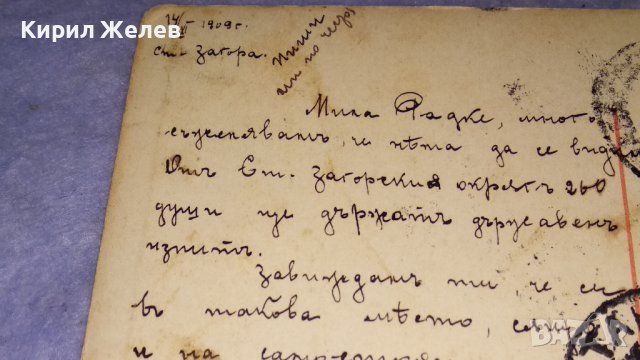 Кирил Желев
14/III 1909 г.
ст. Загора.
Пиши
ми по скоро
Мила Радке, много
съжелявамъ, че нѣма да се види
Отъ Ст. Загорския окрягъ 260
души ще държатъ държавенъ
изпитъ.
Завиждамъ ти че си
въ такова мѣсто,
и на
BAZAR